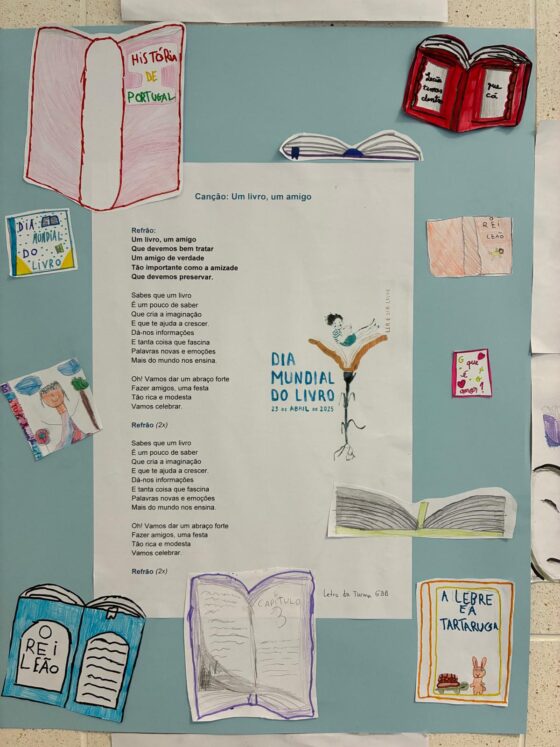 HISTÓRIA
DE
PORTUGAL
que
cá
Canção: Um livro, um amigo
Refrão:
Um livro, um amigo
Que devemos bem tratar
Um amigo de verdade
Tão importante como a amizade
Que devemos preservar.
Sabes que um livro
É um pouco de saber
Que cria a imaginação
E que te ajuda a crescer.
Dá-nos informações
E tanta coisa que fascina
Palavras novas e emoções
Mais do mundo nos ensina.
Oh! Vamos dar um abraço forte
Fazer amigos, uma festa
Tão rica e modesta
Vamos celebrar.
Refrão (2x)
Sabes que um livro
É um pouco de saber
Que cria a imaginação
E que te ajuda a crescer.
Dá-nos informações
E tanta coisa que fascina
Palavras novas e emoções
Mais do mundo nos ensina.
Oh! Vamos dar um abraço forte
Fazer amigos, uma festa
Tão rica e modesta
Vamos celebrar.
Refrão (2x)
DIA
MUNDIAL
DO LIVRO
23 DE ABRIL DE 2025
Letra da Turma
DIA
MUNDIAL
DO
LIVRO
O
REI
LEÃO
O que
é o
amor?
O
REI
LEÃO
CAPITULO
3
A LEBRE
E A
TARTARUGA